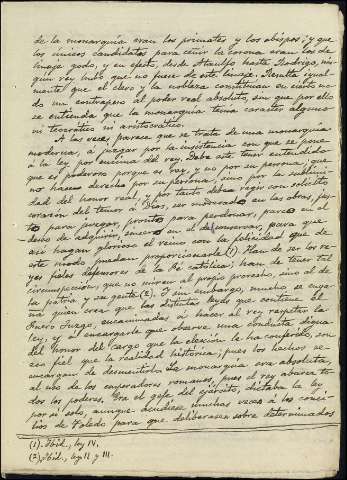 de la monarquía eran los primates y los obispos; y que
los únicos candidatos para ceñir la corona eran los de
linaje godo, y en efecto, desde Ataulfo hasta Rodrigo, nin-
gún rey hubo que no fuese de este linaje. Resulta igual-
mente que el clero y la nobleza constituían en cierto mo-
do un contrapeso al poder real absoluto, sin que por ello
se entienda que la monarquía tenía carácter alguno
ni teocrático ni aristocrático.
A las veces parece que se trata de una monarquía
moderna, á juzgar por la insistencia con que se pone
á la ley por encima del rey. Debe este tener entendido
que es poderoso porque es rey, y no por su persona; que
no hacen derecho por su persona, sino por la
dad del honor real, y por tanto debe regir con solícito
corazón del temor á Dios, ser moderado en las obras, jus-
to para juzgar, pronto para perdonar, parco en el
deseo de adquirir, sincero en el de conservar, para que
así hagan glorioso el reino con la felicidad que de
este modo puedan proporcionarle (1). Han de ser los re-
yes fieles defensores de la fé católica; han de tener tal
circunspección, que no miren al propio provecho, sino al de
la patria y su gente (2). Y sin embargo, mucho se enga-
ña quien crea que las distintas leyes que contiene el
Fuero Juzgo, encaminadas á hacer al rey respetar la
ley, y á encargarle que observe una conducta digna
del honor del cargo que la elección le ha conferido, son
eco fiel que la realidad histórica; pues los hechos se
encargan de desmentirlo. La monarquía era absoluta,
al uso de los emperadores romanos, pues el rey abarca to-
dos los poderes. Era el gefe del ejército, dictaba la ley
por sí solo, aunque acudiese muchas veces á los conci-
lios de Toledo para que deliberasen sobre determinados
(1). Ibid., ley IV.
(2). Ibid., ley II y III.